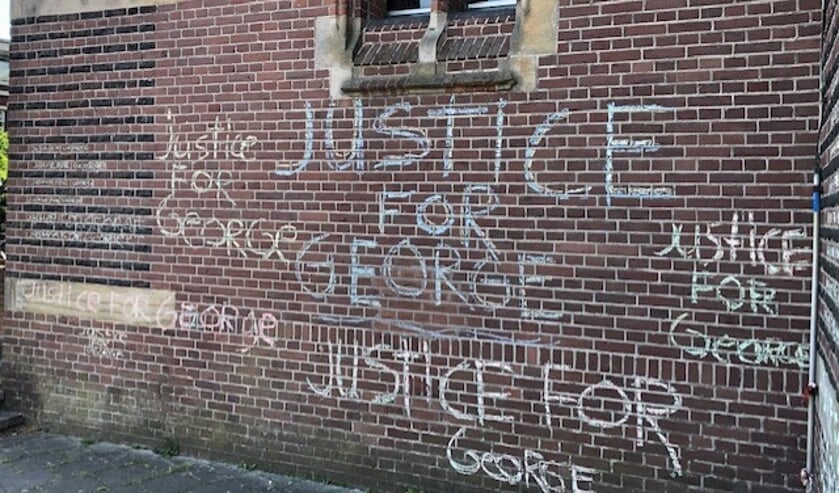 Justice
FOR
GEORGE
JUSTICE
FOR
GEORGE
JUSTICE
FOR
GEORGE
JUSTICE FOR GEORGE
JUSTICE FOR
GEORGE